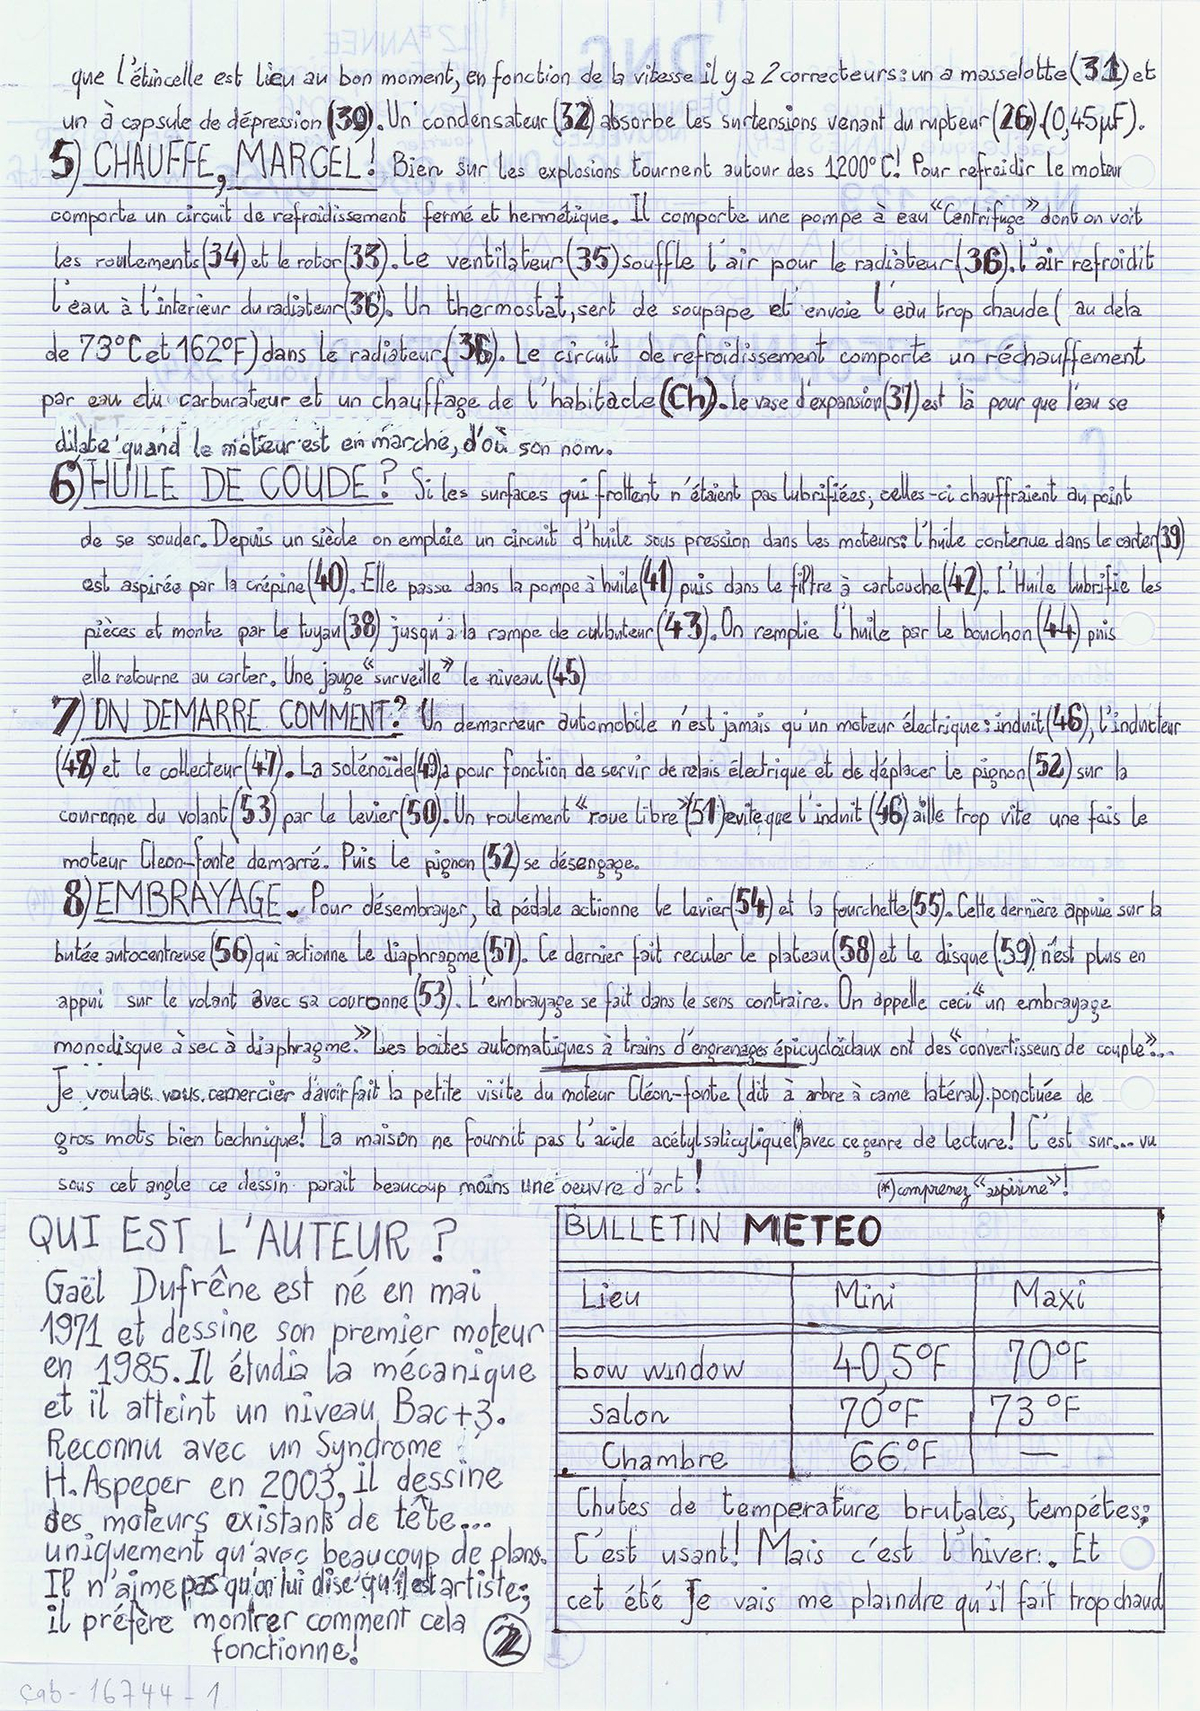 que l'étincelle est lieu au bon moment, en fonction de la vitesse il y a 2 correcteurs: un a masselotte (31) et
un à capsule de dépression (30). Un condensateur (32) absorbe les surtensions venant du rupteur (26) (0,45µF).
5) CHAUFFE, MARCEL! Bien sur les explosions tournent autour des 1200°C! Pour refroidir le moteur
comporte un circuit de refroidissement fermé et hermétique. Il comporte une pompe à eau "Centrifuge" dont on voit
les roulements (34) et le rotor (33). Le ventilateur (35) souffle l'air pour le radiateur (36). l'air refroidit
l'eau à l'intérieur du radiateur (36). Un thermostat, sert de soupape et envoie l'eau trop chaude ( au dela
de 73°C et 162°F) dans le radiateur (36). Le circuit de refroidissement comporte un réchauffement
par eau du carburateur et un chauffage de l'habitacle (Ch). Le vase d'expansion (37) est là pour que l'eau se
dilate quand le moteur est en marche, d'où son nom.
6) HUILE DE COUDE? Si les surfaces qui frottent n'étaient pas lubrifiées, celles-ci chauffraient au point
de se souder. Depuis un siècle on emploie un circuit d'huile sous pression dans les moteurs: l'huile contenue dans le carter (39)
est aspirée par la crépine (40). Elle passe dans la pompe à huile (41) puis dans le filtre à cartouche (42). L'Huile lubrifie les
pièces et monte par le tuyau (38) jusqu'à la rampe de culbuteur (43). On remplie l'huile par le bouchon (44) puis
elle retourne au carter. Une jauge "surveille" le niveau (45)
7) ON DEMARRE COMMENT? Un demarreur automobile n'est jamais qu'un moteur électrique: induit (46), l'inducteur
(48) et le collecteur (47). La solénoïde (49) a pour fonction de servir de relais électrique et de déplacer le pignon (52) sur la
couronne du volant (53) par le levier (50). Un roulement "roue libre" (51) evite que l'induit (46) aille trop vite une fois le
moteur Cleon-fonte demarré. Puis le pignon (52) se désengage.
8) EMBRAYAGE. Pour désembrayer, la pédale actionne le levier (54) et la fourchette (55). Cette dernière appuie sur la
butée autocentreuse (56) qui actionne le diaphragme (57). Ce dernier fait reculer le plateau (58) et le disque (59) n'est plus en
appui sur le volant avec sa couronne (53). L'embrayage se fait dans le sens contraire. On appelle ceci "un embrayage
monodisque à sec à diaphragme." Les boites automatiques à trains d'engrenages épicycloïdaux ont des "convertisseurs de couple"...
Je voulais vous remercier d'avoir fait la petite visite du moteur Cléon-fonte (dit à arbre à came latéral) ponctuée de
gros mots bien technique! La maison ne fournit pas l'acide acétylsalicylique(*) avec ce genre de lecture! C'est sur... vu
sous cet angle ce dessin parait beaucoup moins une oeuvre d'art!
(*) comprenez "aspirine"!
QUI EST L'AUTEUR ?
Gaël Dufrêne est né en mai
1971 et dessine son premier moteur
en 1985. Il étudia la mécanique
et il atteint un niveau Bac+3.
Reconnu avec un Syndrome
H. Aspeger en 2003, il dessine
des moteurs existants de tête...
uniquement qu'avec beaucoup de plans.
Il n'aime pas qu'on lui dise qu'il est artiste;
il préfère montrer comment cela
fonctionne!
2
BULLETIN METEO
Lieu Mini Maxi
bow window 40,5°F 70°F
salon 70°F 73°F
Chambre 66°F —
Chutes de temperature brutales, tempétes;
C'est usant! Mais c'est l'hiver.. Et
cet été Je vais me plaindre qu'il fait trop chaud
cab-16744-1